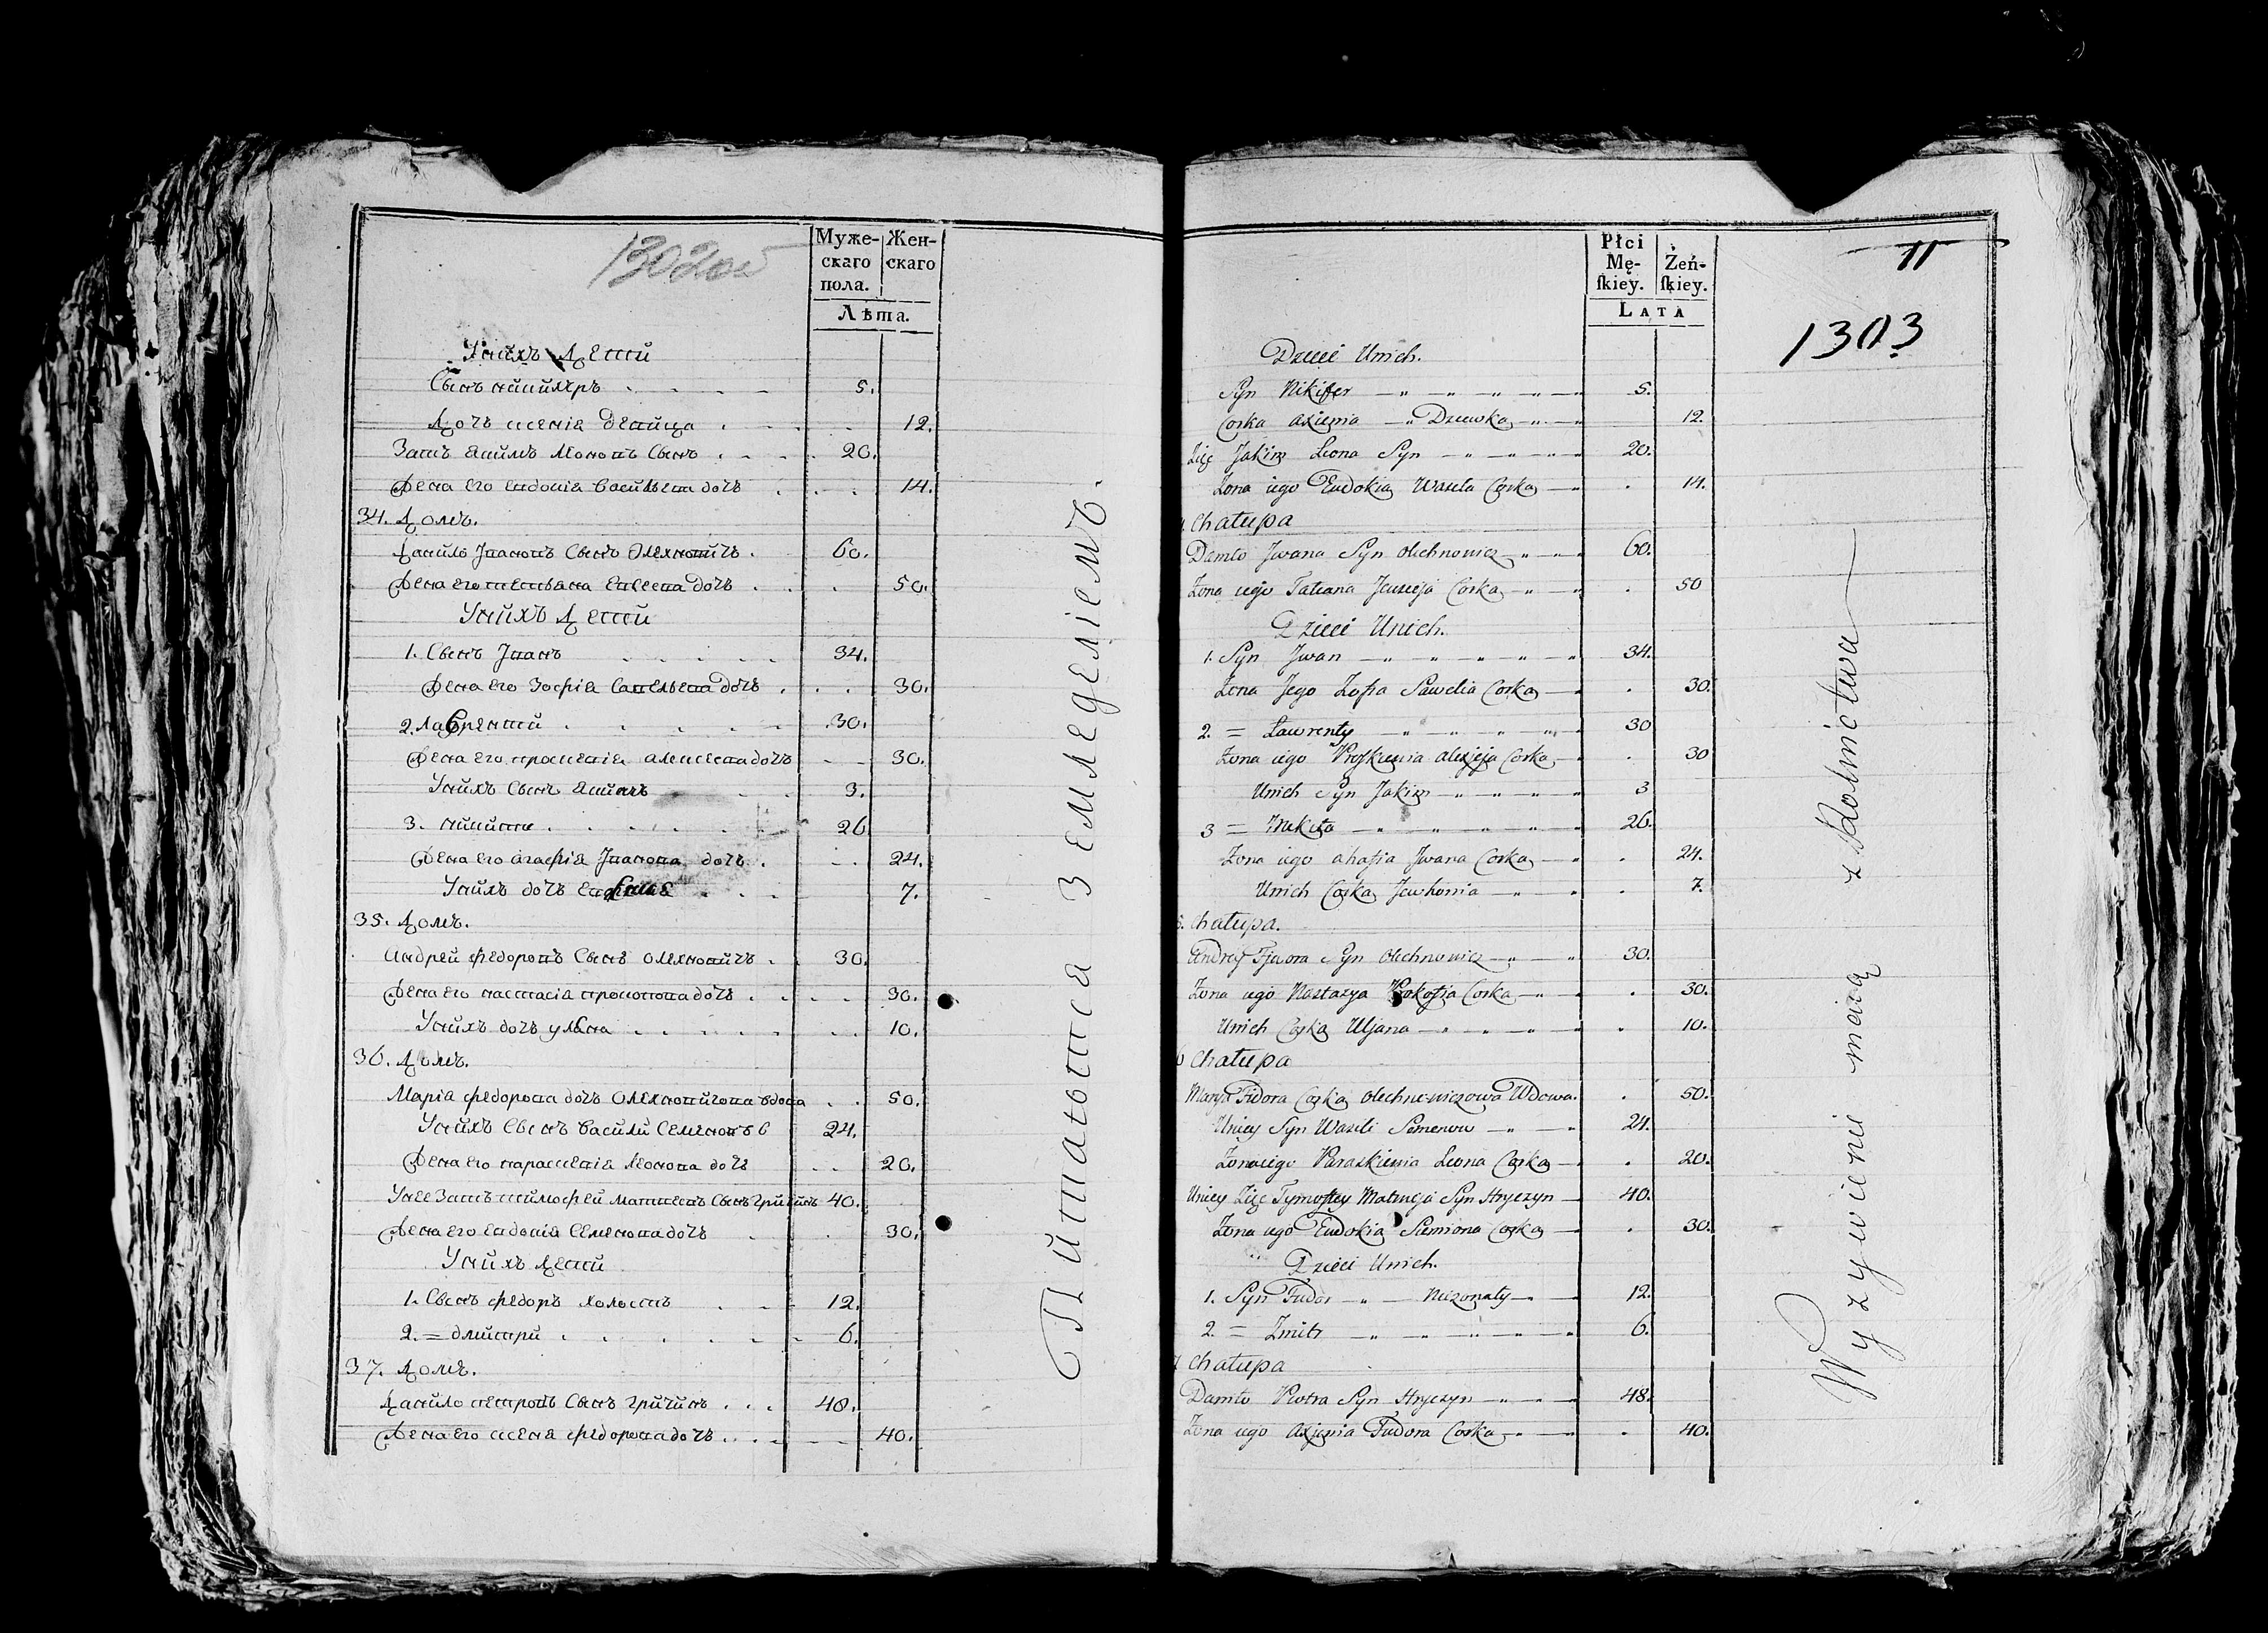 1302об
Муже-
скаго
пола.
Жен-
скаго
Лѣта.
Унихъ Дети
Сынъ никифиръ 5.
Дочъ ксенія Девица 12.
Зять Якимъ Леоновъ Сынъ 20.
Жена его евдокія Васильева дочъ 14.
34. Домъ.
Данило Ивановъ Сынъ Олехновичъ 60.
Жена его тетьяна евсеева дочъ 50.
Унихъ Дети
1. Сынъ Иванъ 34.
Жена его Зофія Савельева дочъ 30.
2. Лаврентій 30.
Жена его проскевія алексеева дочъ 30.
Унихъ Сынъ Якимъ 3.
3. никита 26
Жена его агафія Иванова дочъ 24.
Унихъ дочъ 7.
35. Домъ.
Андрей федоровъ Сынъ олехновичъ 30.
Жена его настасія прокопова дочъ 30.
Унихъ дочъ уляна 10.
36. Домъ.
Марія федорова дочъ олехновичова вдова 50.
Унихъ Сынъ Василй Семеновъ 24.
Жена его параскевія леонова дочъ 20.
Унее Зять тимофей матвеевъ Сынъ Гричинъ 40.
Жена его евдокія Семенова дочъ 30.
Унихъ дети
1. Сынъ федоръ холостъ 12.
2. = дмитри 6.
37. Домъ.
Данило петровъ Сынъ гричинъ 48.
Жена его ксеня федорова дочъ 40.
Питаются Земледеліемъ.
Płci
Mę-
ſkiey.
Żeń-
ſkiey.
LATA
11
1303
Dzieci Unich.
Syn Nikifer 5.
Corka Axienia Dziewka 12.
Zięc Jakim Leona Syn 20.
Żona iego Eudokia Wasila Corka 14.
Chałupa
Daniło Jwana Syn Olechnowicz 60.
Żona iego Tatiana Jewsieja Corka 50
Dzieci Unich.
1. Syn Jwan 34.
Żona Jego Zofia Sawelia Corka 30.
2. = Ławrenty 30
Żona iego Proſkiewia Alexieja Corka 30
Unich Syn Jakim 3
3 = Mikita 26.
Żona iego ahafia Jwana Corka 24.
Unich Corka Jewhonia 7.
Chałupa.
Andrey Fjedora Syn Olechnowicz 30.
Żona iego Nastazya Corka 30.
Unich Corka Uljana 10.
Chałupa
Marya Fidora Corka Olechnowiczowa Wdowa. 50.
Uniey Syn Wasili Semenow 24.
Żona iego Paraskiewia Leona Corka 20.
Uniey Zięc Tymofiey Matwieja Syn Hryczyn 40.
Żona iego Eudokia Siemiona Corka 30.
Dzieci Unich.
1. Syn Fiedor Nieżonaty 12.
2. = Zmitr 6.
Chałupa
Daniło Piotra Syn Hryczyn 48.
Żona iego Axjenia Fiudora Corka 40.
Wyzywienie maią z Rolnictwa